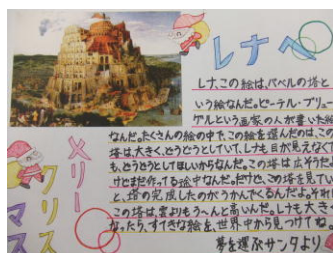 レナへ
レナ、この絵は、バベルの塔と
いう絵なんだ。ピーテル・ブリュー
ゲルという画家の人が書いた絵
なんだ。たくさんの絵の中で、この絵を選んだのは、この
塔は大きく、どうどうとしていて、レナも目が見えなくて
も、どうどうとしてほしいからなんだ。この塔は広そうだ
けどまだ作ってる途中なんだ。だけど、この塔を見てい
と、塔の完成したのがうかんでくるんだよ。それに
この塔は、雲よりもう〜んと高いんだ。レナも大き
なったら、すてきな絵を、世界中から見つけてね。
夢を運ぶサンタより
メリー
クリス
マス